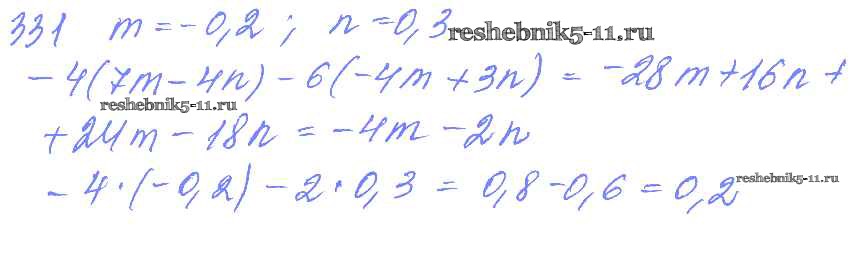 331 m = -0,2 ; n = 0,3 reshebnik5-11.ru
-4(7m - 4n) - 6(-4m + 3n) = -28m + 16n +
reshebnik5-11.ru
+ 24m - 18n = -4m - 2n
-4·(-0,2) - 2·0,3 = 0,8 - 0,6 = 0,2 reshebnik5-11.ru